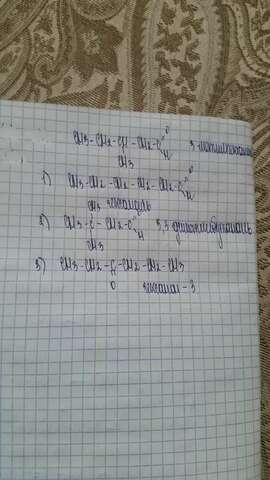 CH3-CH2-CH-CH2-C=O 3-метилпентаналь
H
CH3
1) CH3-CH2-CH2-CH2-CH2-C=O
H
гексаналь
CH3
2) CH3-C-CH2-C=O 3,3-диметилбутаналь
H
CH3
3) CH3-CH2-C-CH2-CH2-CH3
O гексанон-3